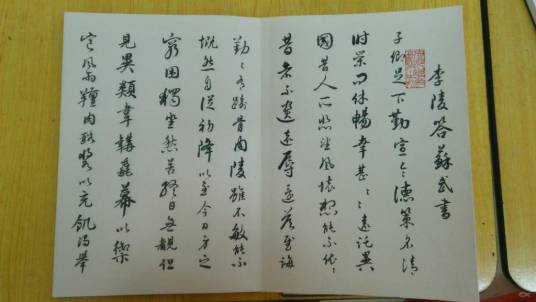 李陵答蘇武書
子卿足下勤宣令德策名清
时荣问休暢幸甚々遠託異
國昔人所悲望風懷想能不依々
昔者不遺遠辱還答慰誨
勤々有踰骨肉陵雖不敏能不
慨然自從初降以至今日身之
窮困獨坐愁苦終日無覩但
見異類韋韝毳幕以禦
风雨羶肉酪漿以充飢渴舉